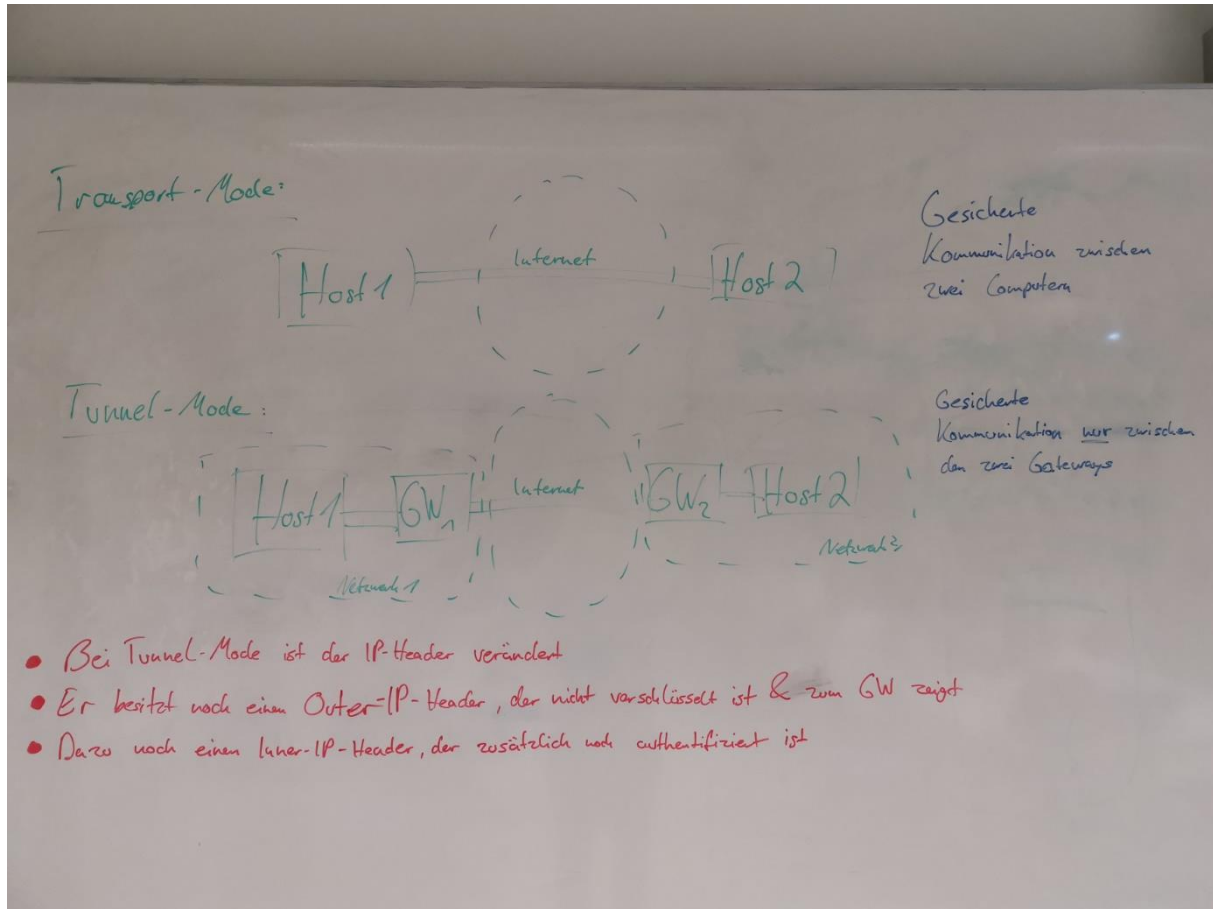 Transport-Mode:
Host 1
Internet
Host 2
Gesicherte
Kommunikation zwischen
zwei Computern
Tunnel-Mode:
Host 1
GW1
Internet
GW2
Host 2
Netzwerk 1
Netzwerk 2
Gesicherte
Kommunikation nur zwischen
den zwei Gateways
• Bei Tunnel-Mode ist der IP-Header verändert
• Er besitzt noch einen Outer-IP-Header, der nicht verschlüsselt ist & zum GW zeigt
• Dazu noch einen Inner-IP-Header, der zusätzlich noch authentifiziert ist